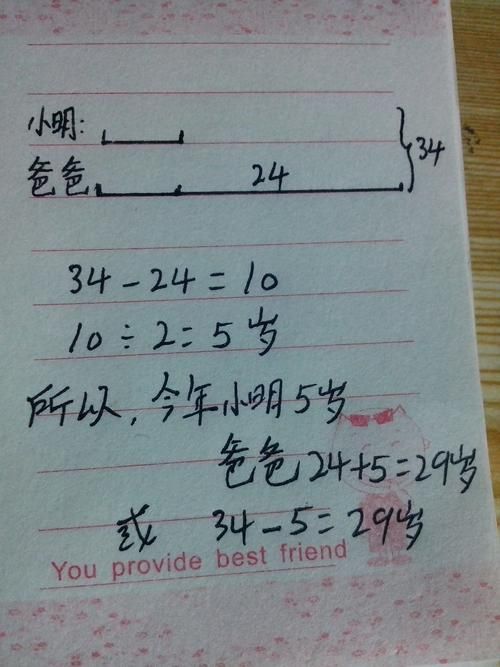 小明:
34
爸爸
24
34-24=10
10÷2=5岁
所以,今年小明5岁
爸爸24+5=29岁
或 34-5=29岁
You provide best friend